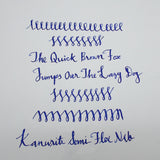 The Quick Brown Fox
Jumps Over The Lazy Dog
Kanwrite Semi Flex Nib